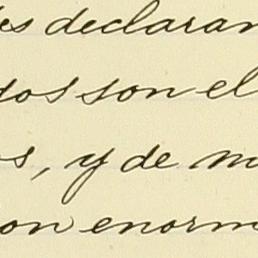 es declaran
dos son el
os, y de m
on enorm